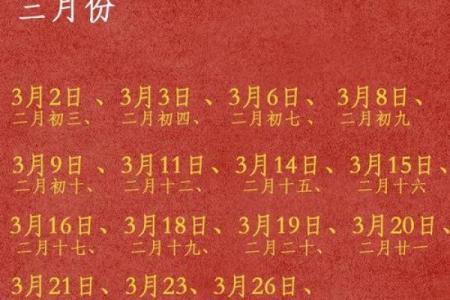 三月份
3月2日、3月3日、3月6日、3月8日、
二月初三、 二月初四、 二月初七、 二月初九
3月9日、3月11日、3月14日、3月15日、
二月初十、 二月十二、 二月十五、 二月十六
3月16日、3月18日、3月19日、3月20日、
二月十七、 二月十九、 二月二十、 二月廿一
3月21日、3月23、3月26日、